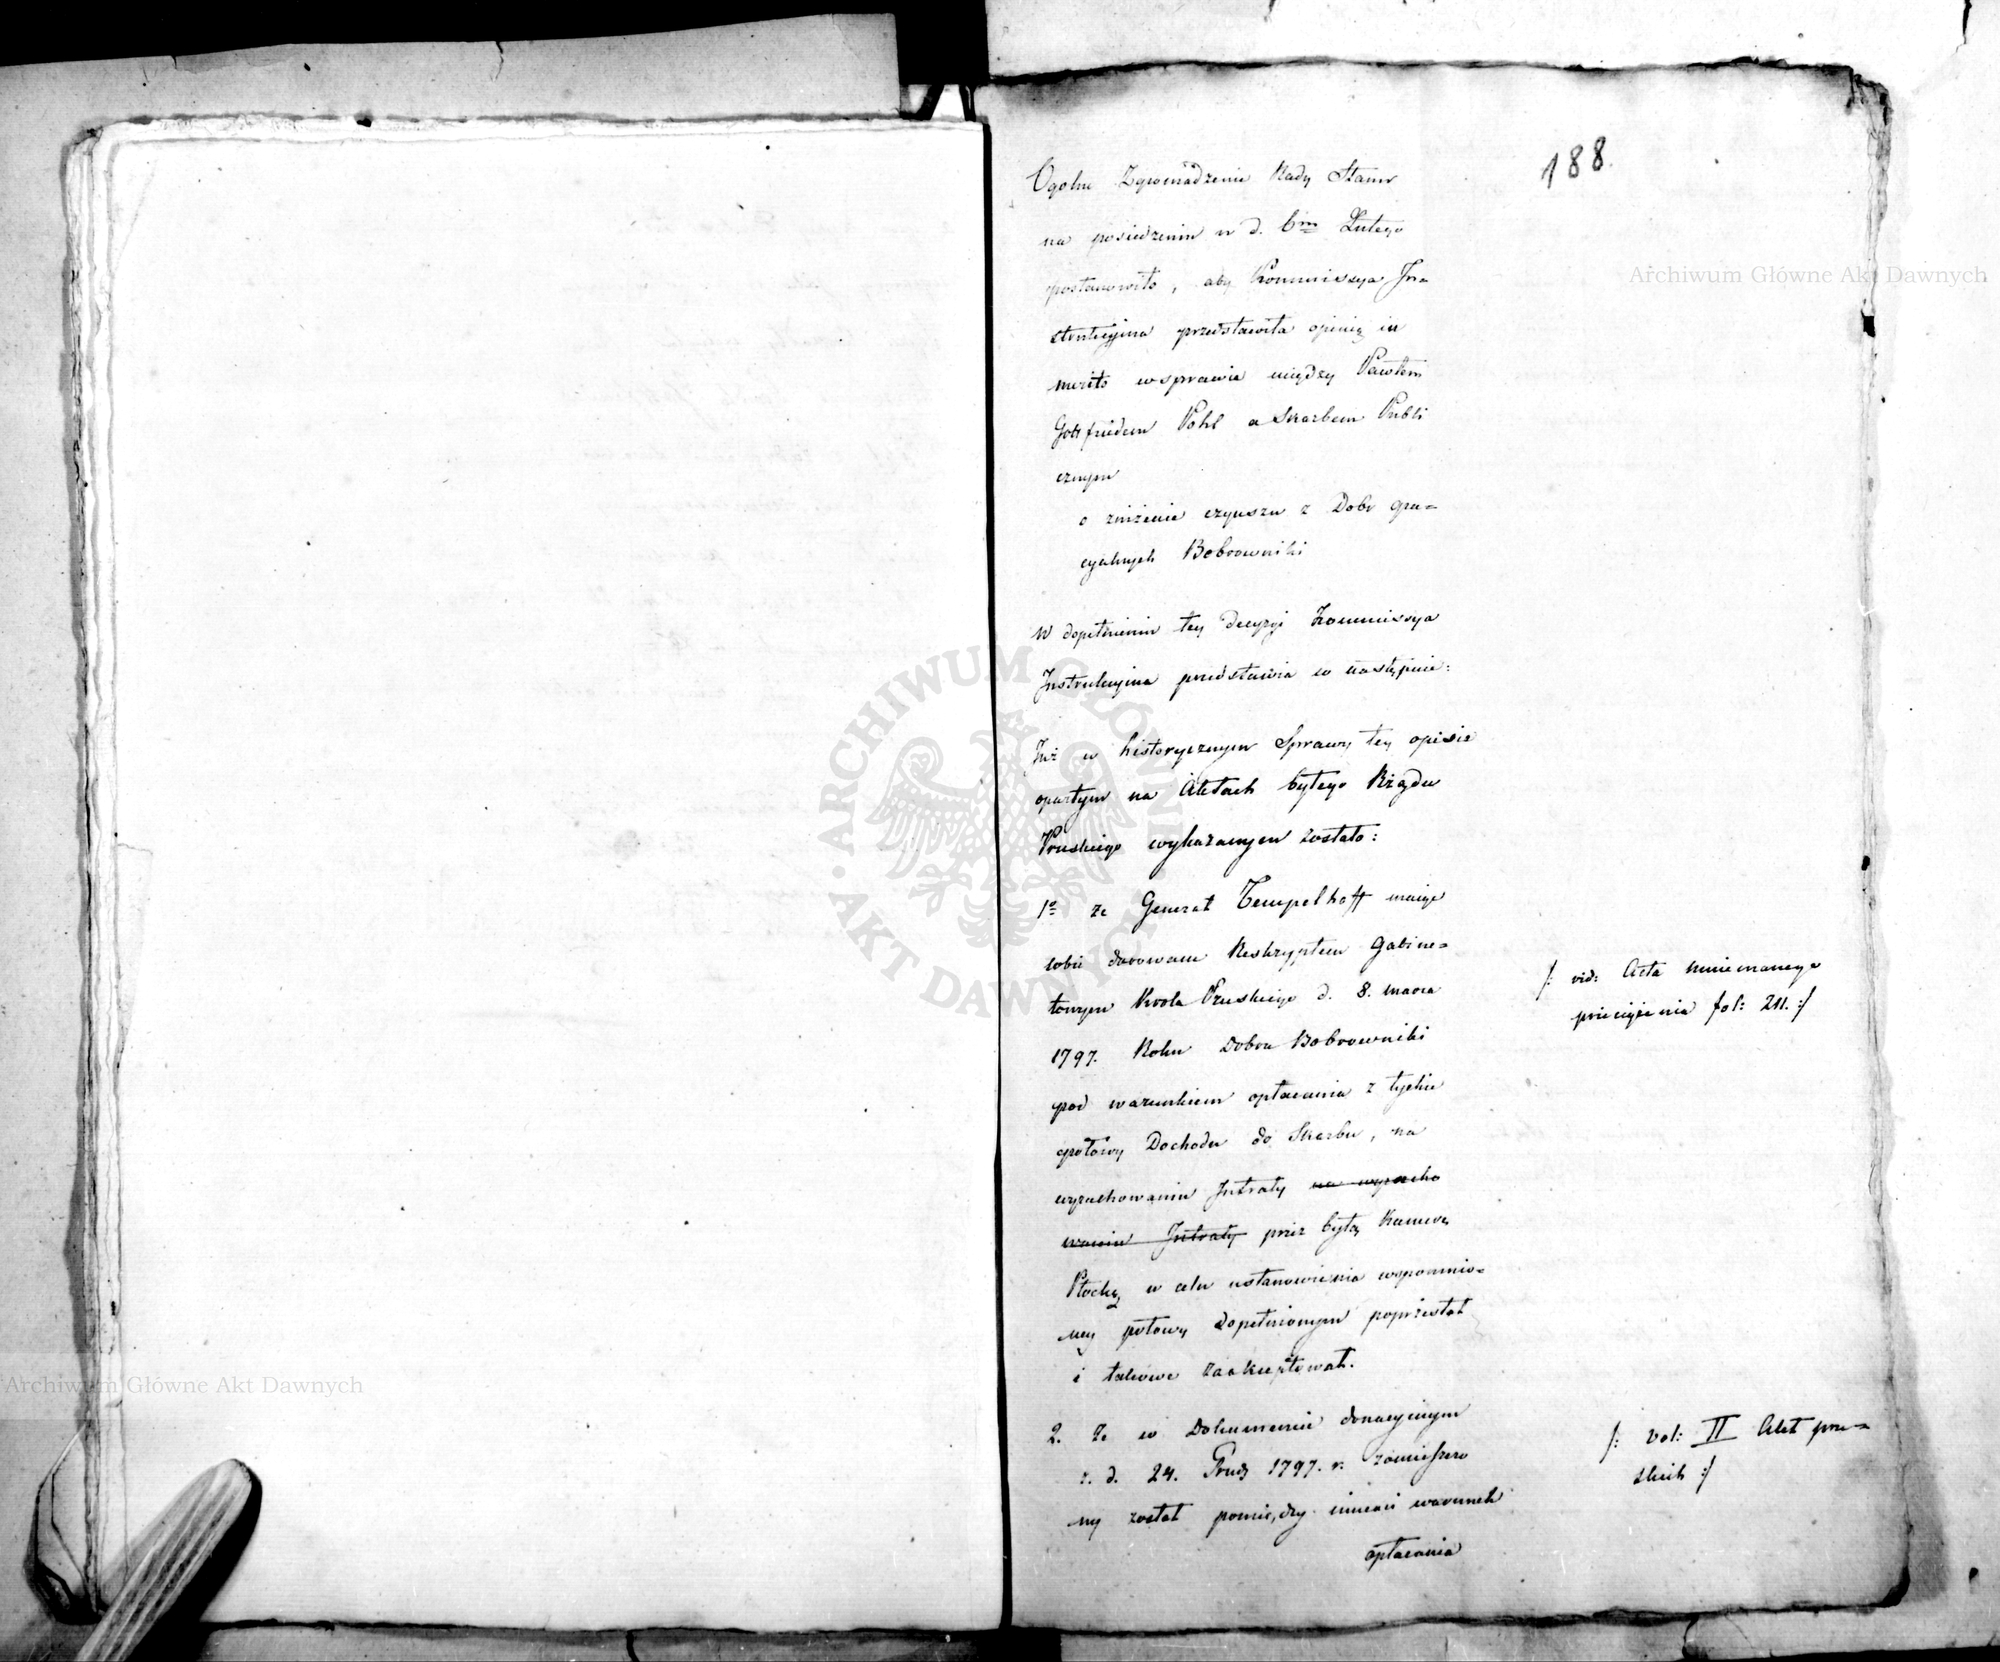 188.
Ogolne Zgromadzenie Rady Stanu
na posiedzeniu w d. 6m Lutego
postanowiło, aby Kommissya In=
strukcyjna przedstawiła opinią in
merito w sprawie między Pawłem
Gottfriedem Pohl a Skarbem Publi
cznym
o zniżenie czynszu z Dobr gra=
cyalnych Bobrowniki
W dopełnieniu tey decyzyi Kommissya
Instrukcyjna przedstawia co następuie:
Już w historycznym Sprawy tey opisie
opartym na Aktach byłego Rządu
Pruskiego wykazanym zostało:
1o że Generał Tempelhoff maiąc
sobie darowane Reskryptem Gabine=
towym Krola Pruskiego d. 8. marca
1797. Roku Dobra Bobrowniki
pod warunkiem opłacania z tychże
połowy Dochodu do Skarbu, na
wyrachowaniu Intraty na wyracho
waniu Intraty przez byłą Kamerę
Płocką w celu ustanowienia wspomnio=
ney połowy dopełnionym poprzestał
i takowe zaakceptował.
/: vid: Acta mniemanego
przeciążenia fol: 211. :/
2. Że w Dokumencie donacyjnym
z d. 24. Grudz 1797. r. zamieszczo
ny został pomiędzy innemi warunek
opłacania
/: vol: II Akt pru=
skich :/
Archiwum Główne Akt Dawnych
ARCHIWUM GŁÓWNE AKT DAWNYCH
Archiwum Główne Akt Dawnych